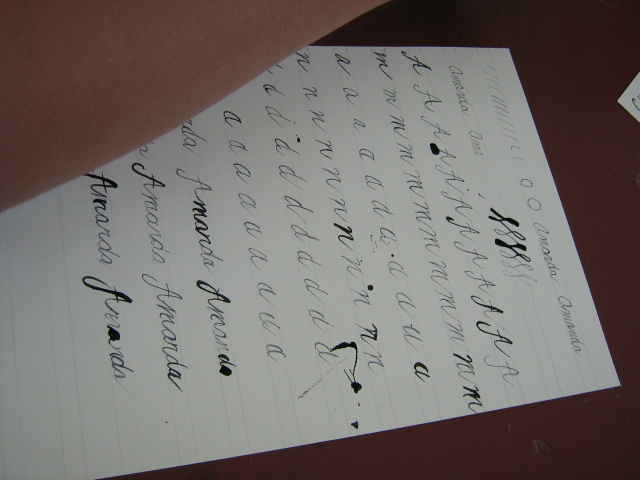 o o Amanda Amanda
Amanda Ama
A A A A A A A A A A A A
m m m m m m m m m m m m
a a a a a a a a a a a
n n n n n n n n n n n
d d d d d d d d d d
a a a a a a a a a
da Amanda Amanda
a Amanda Amanda
Amanda Amanda